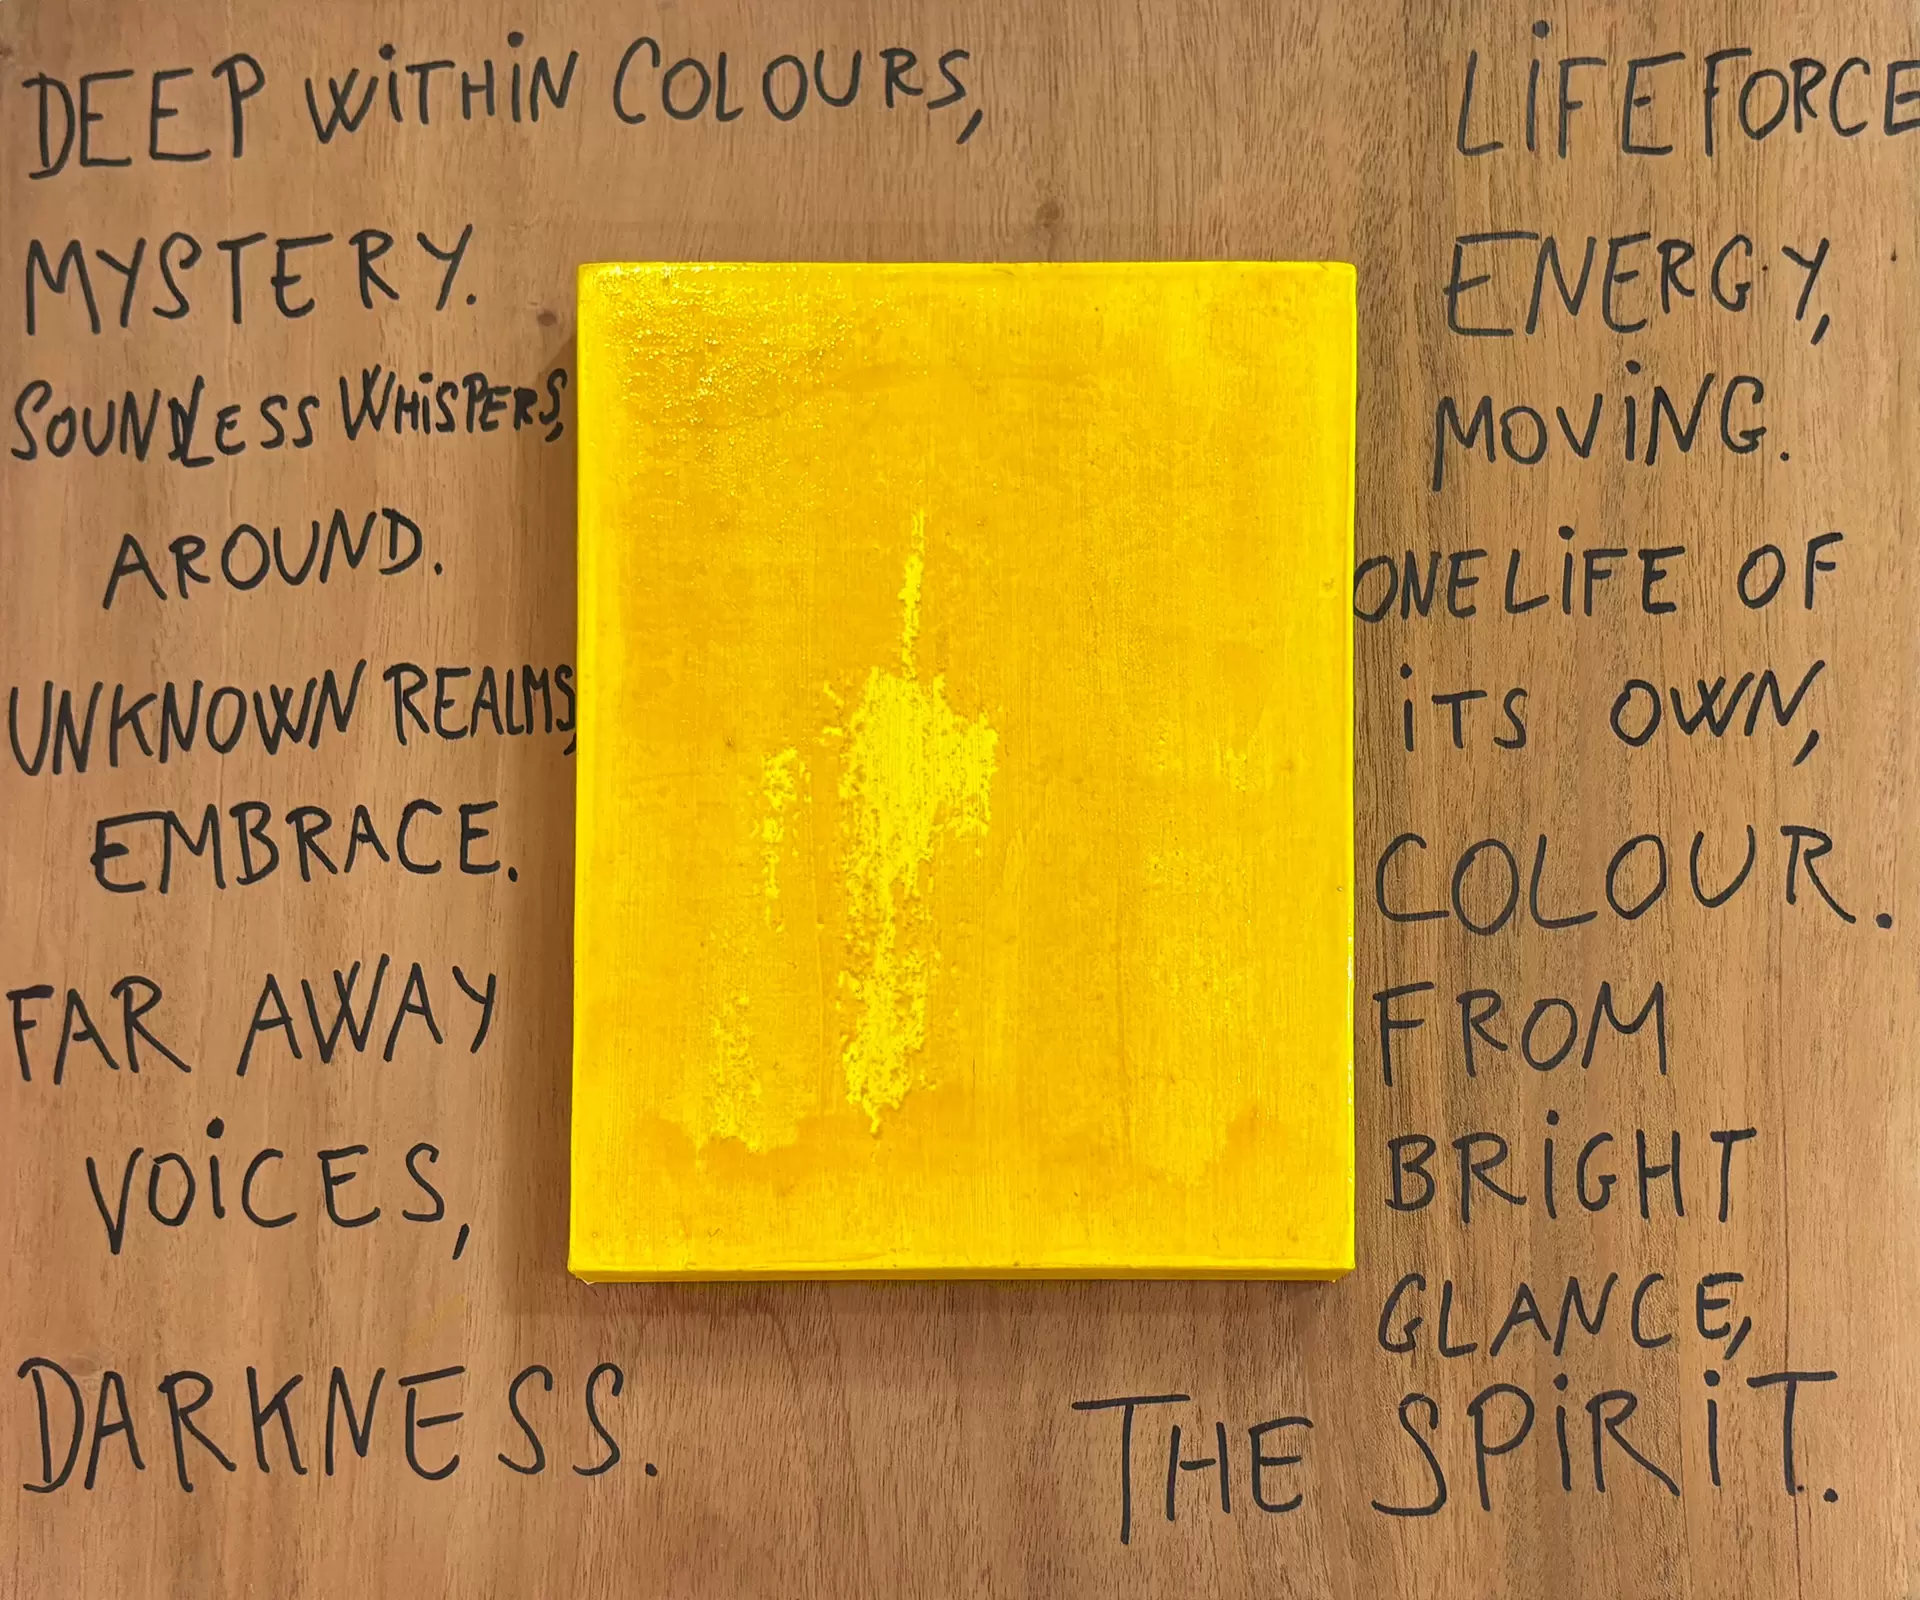 DEEP WITHIN COLOURS,
MYSTERY.
SOUNDLESS WHISPERS,
AROUND.
UNKNOWN REALMS,
EMBRACE.
FAR AWAY
VOICES,
DARKNESS.
LIFE FORCE
ENERGY,
MOVING.
ONE LIFE OF
ITS OWN,
COLOUR.
FROM
BRIGHT
GLANCE,
THE SPIRIT.